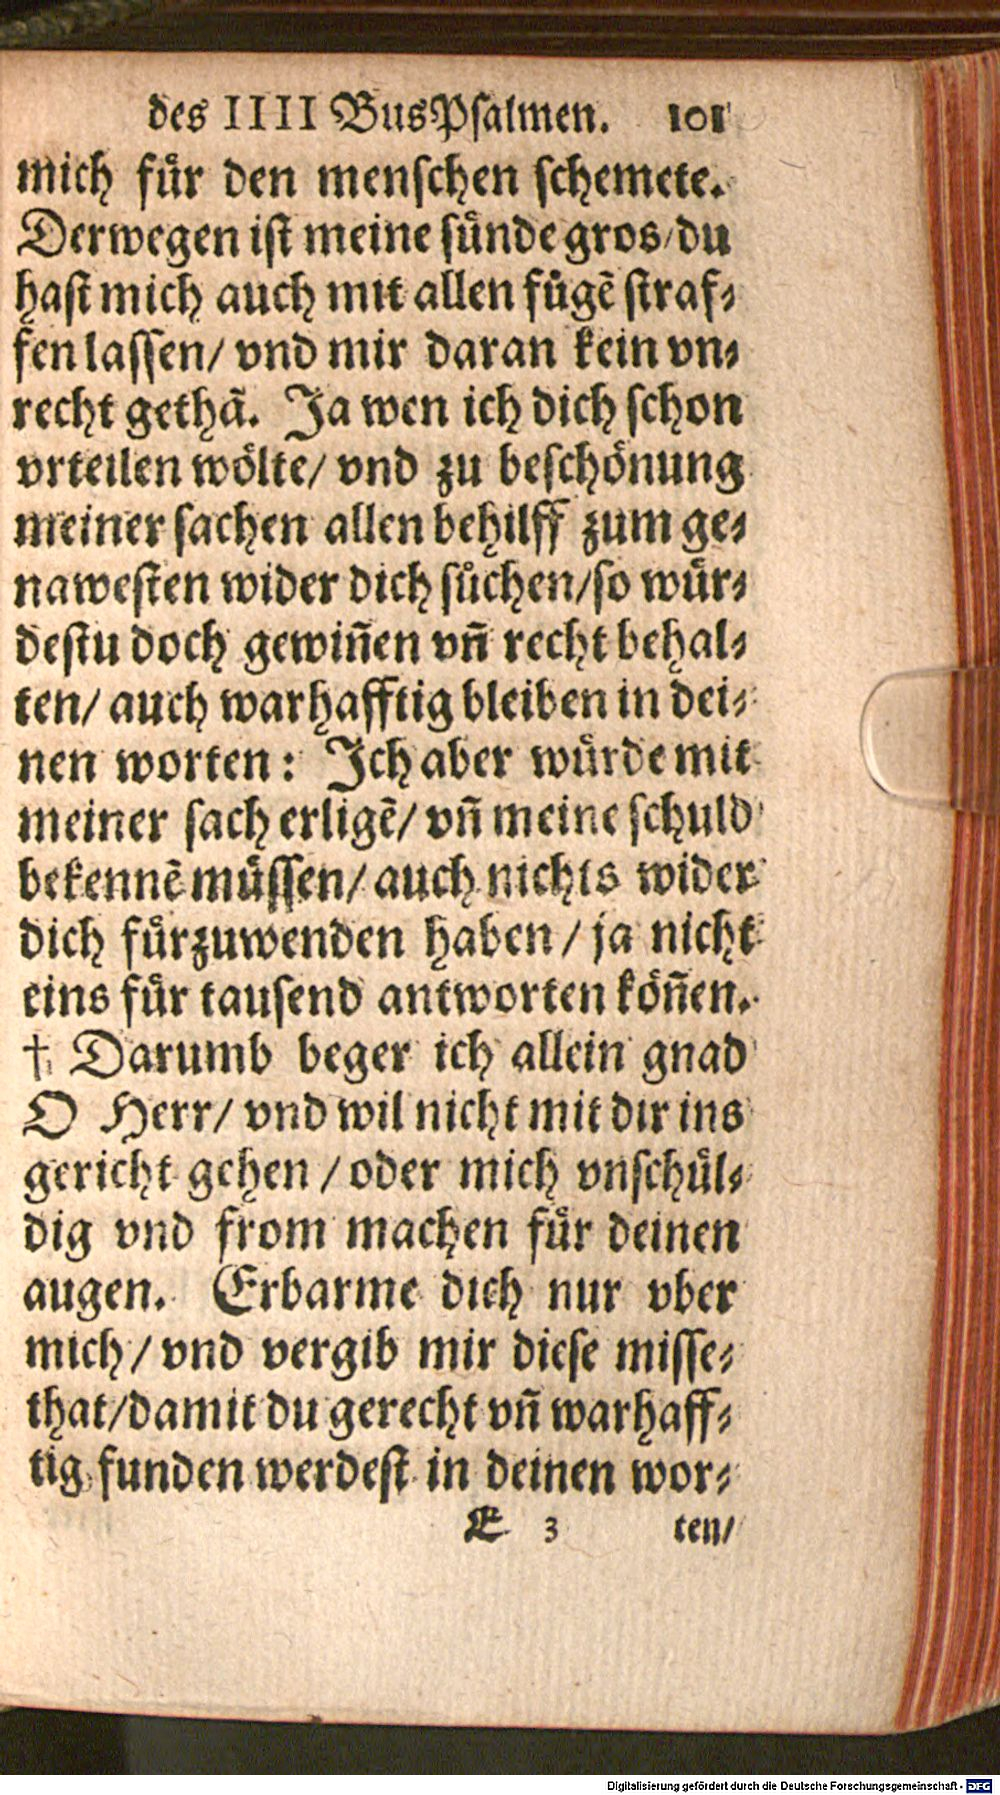 des IIII BusPsalmen. 101
mich fuͤr den menschen schemete.
Derwegen ist meine suͤnde gros/du
hast mich auch mit allen fuͤgẽ straf⸗
fen lassen/ vnd mir daran kein vn⸗
recht gethã. Ja wen ich dich schon
vrteilen woͤlte/ vnd zu beschoͤnung
meiner sachen allen behilff zum ge⸗
nawesten wider dich suͤchen/so wuͤr⸗
destu doch gewiñen vñ recht behal⸗
ten/ auch warhafftig bleiben in dei⸗
nen worten: Ich aber wuͤrde mit
meiner sach erligẽ/ vñ meine schuld
bekennẽ muͤssen/ auch nichts wider
dich fuͤrzuwenden haben/ ja nicht
eins fuͤr tausend antworten koͤñen.
† Darumb beger ich allein gnad
O Herr/ vnd wil nicht mit dir ins
gericht gehen/ oder mich vnschuͤl⸗
dig vnd from machen fuͤr deinen
augen. Erbarme dich nur vber
mich/ vnd vergib mir diese misse⸗
that/damit du gerecht vñ warhaff⸗
tig funden werdest in deinen wor⸗
E 3 ten/
Digitalisierung gefördert durch die Deutsche Forschungsgemeinschaft - DFG